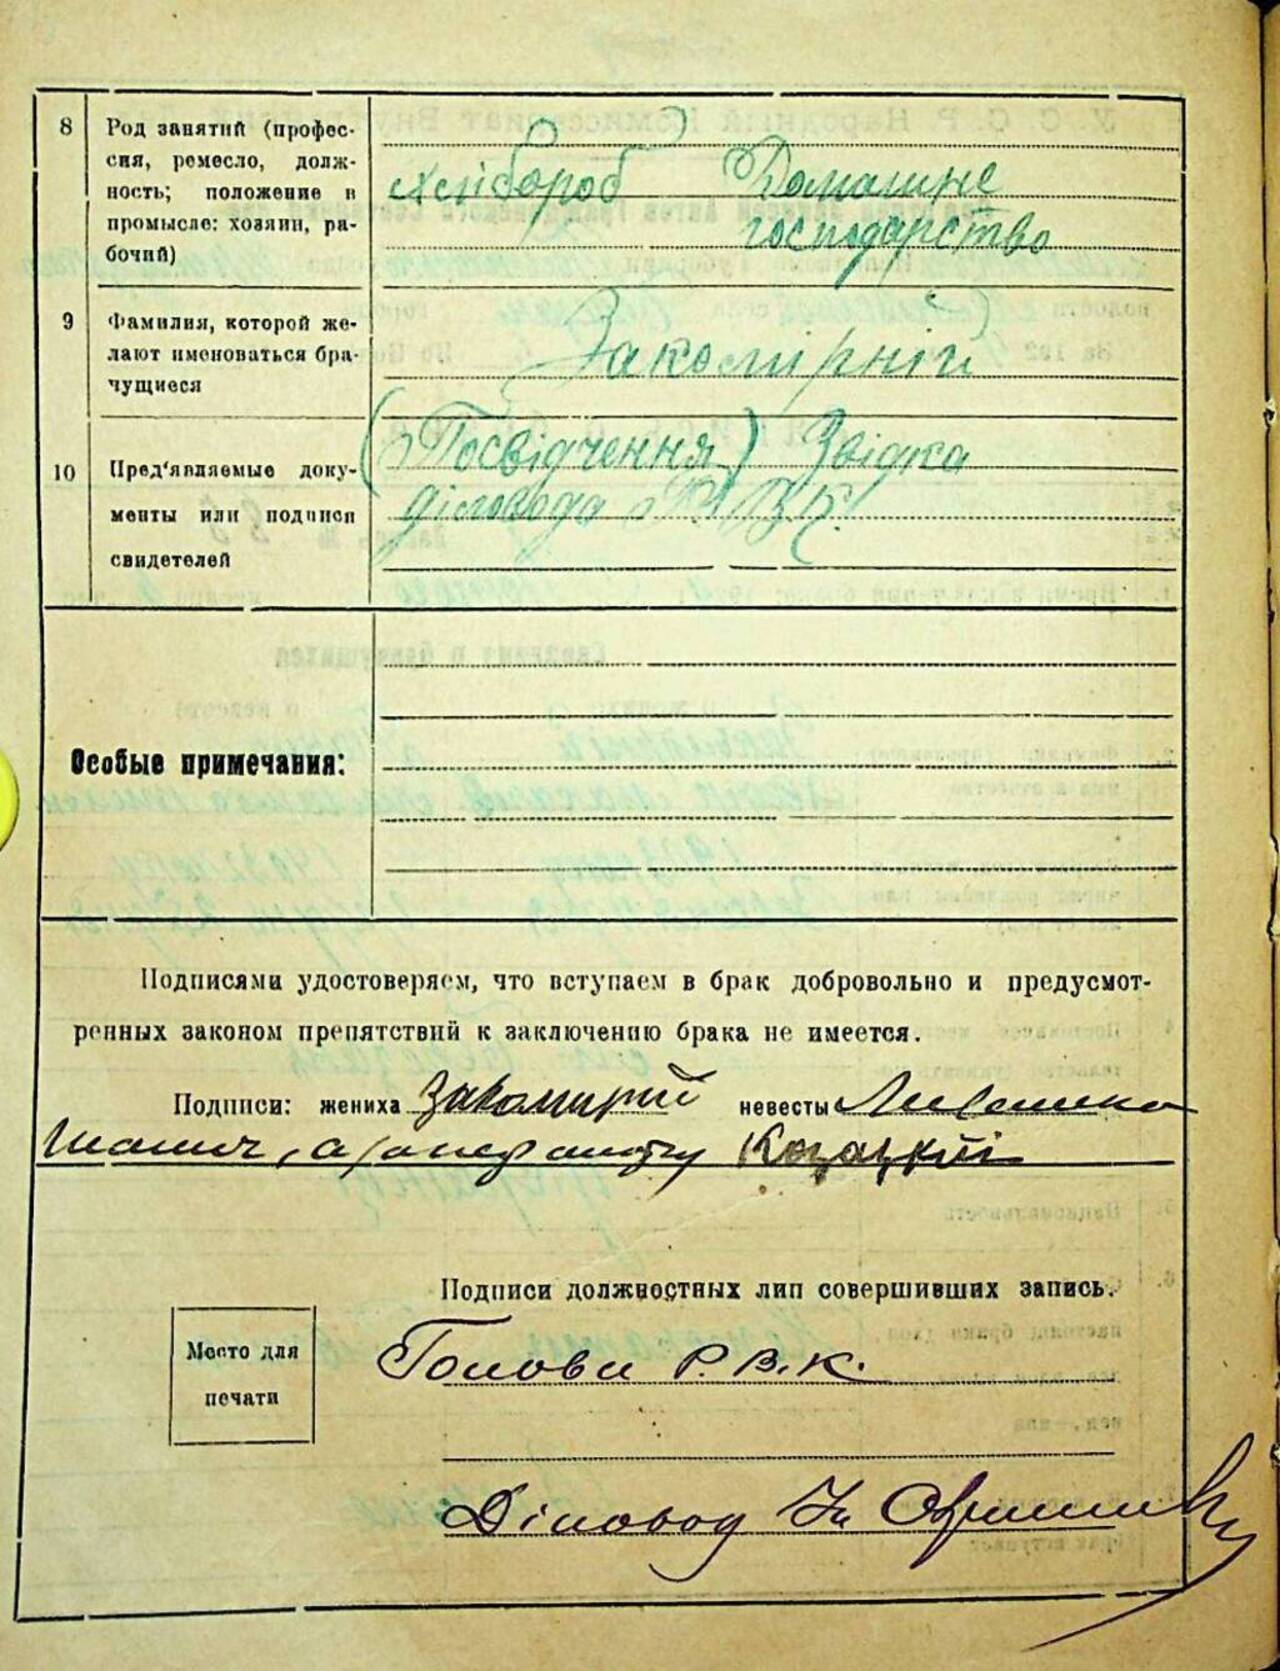 8
Род занятий (профес-
сия, ремесло, долж-
ность; положение в
промысле: хозяин, ра-
бочий)
хлібороб Домашнє
господарство
9
Фамилия, которой же-
лают именоваться бра-
чущиеся
Закомірній
10
Пред'являемые доку-
менты или подписи
свидетелей
(Посвідчення) Звідка
діловода Р.В.К.
Особые примечания:
Подписями удостоверяем, что вступаем в брак добровольно и предусмот-
ренных законом препятствий к заключению брака не имеется.
Подписи: жениха Закомирнй невесты
Козацкій
Подписи должностных лип совершивших запись.
Место для
печати
Голова Р.В.К.
Діловод